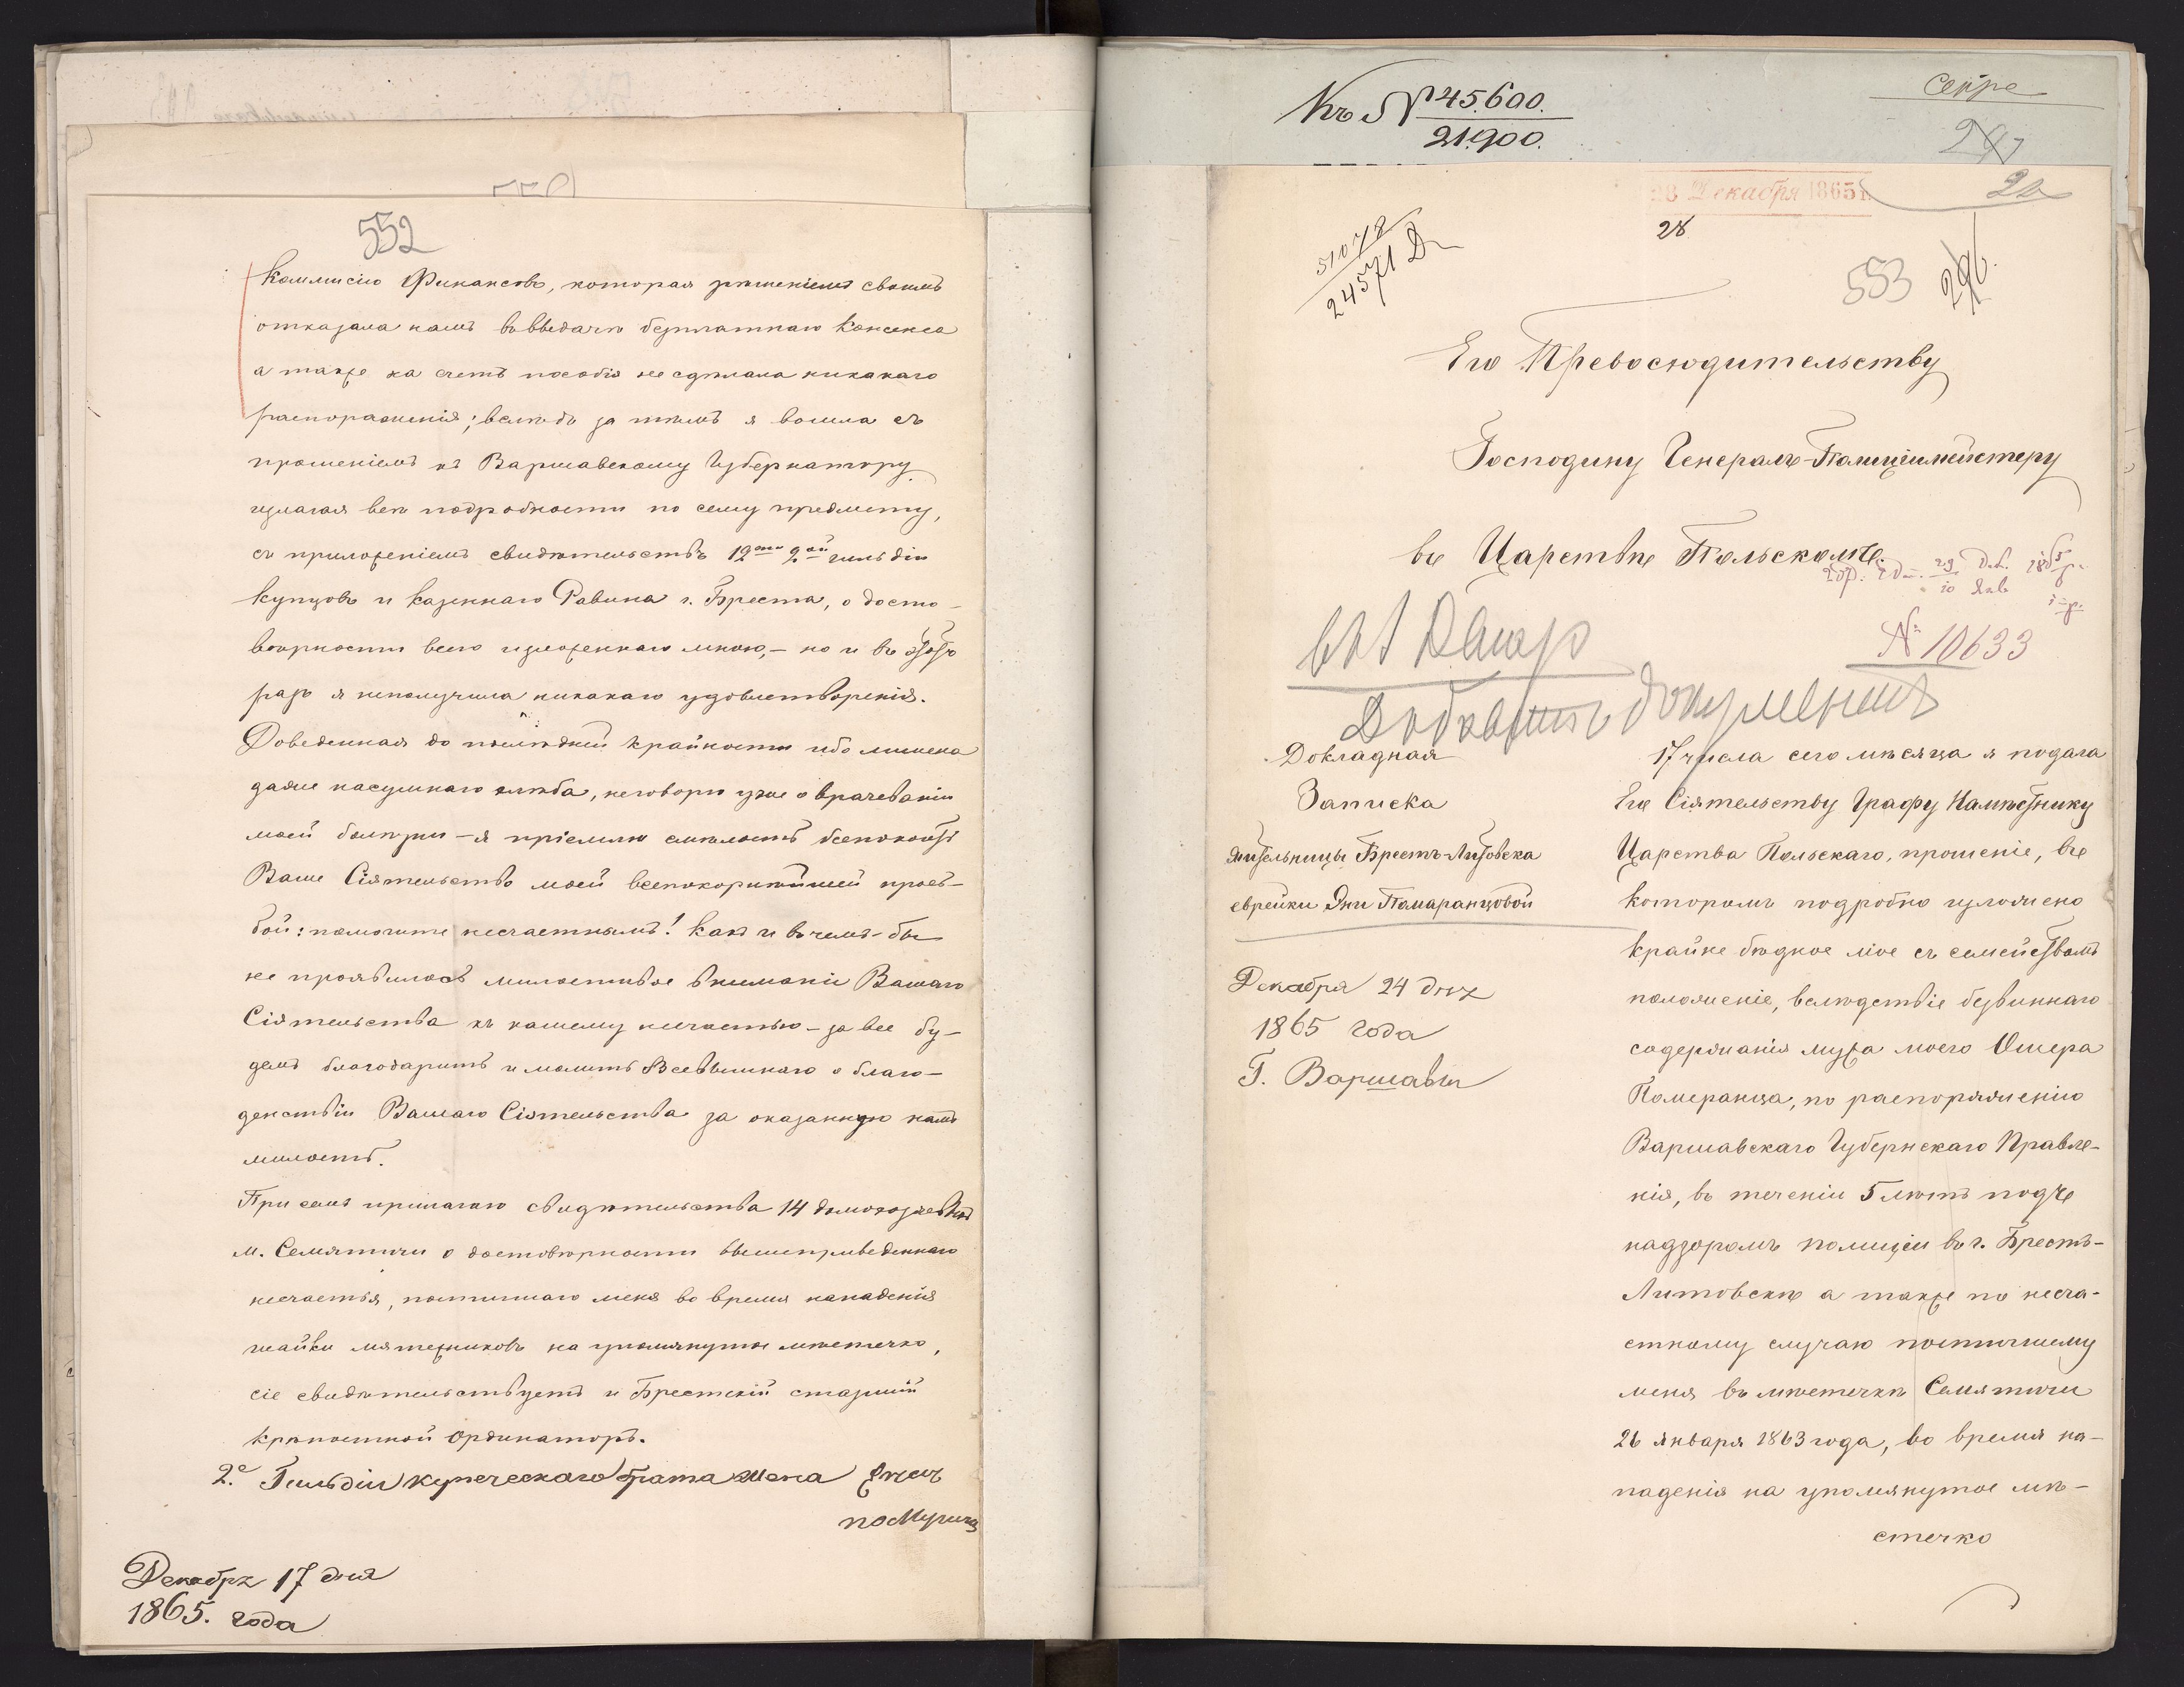 552
Коммисію Финансовъ, которая рѣшеніемъ своимъ
отказала намъ въ выдачѣ безплатнаго Консенса
а также на счетъ пособія не сдѣлала никакаго
распоряженія; вслѣдъ за тѣмъ я вошла съ
прошеніемъ къ Варшавскому Губернатору
излагая всѣ подробности по сему предмету,
съ приложеніемъ свидѣтельствъ 12ти 2ой гильдіи
Купцовъ и Казеннаго Равина г. Бреста, о досто-
вѣрности всего изложеннаго мною, - но и въ этотъ
разъ я неполучила никакаго удовлетворенія.
Доведенная до послѣдней крайности ибо лишена
даже насущнаго хлѣба, неговоря уже о врачеваніи
моей болѣзни - я пріемлю смѣлость безпокоить
Ваше Сіятельство моей всепокорнѣйшей прось-
бой: помогите несчастнымъ! Какъ и въ чемъ-бы
не проявилось милостивое вниманіе Вашаго
Сіятельства къ нашему несчастью - за все бу-
демъ благодарить и молить Всевышнаго о благо-
денствіи Вашаго Сіятельства за оказанную намъ
милость.
При семъ прилагаю свидѣтельства 14 домохозяевъ
м. Семятичи о достовѣрности вышеприведеннаго
несчастья, постигшаго меня во время нападенія
шайки мятежниковъ на упомянутое мѣстечко,
сіе свидѣтельствуетъ и Брестскій старшій
Крѣпостной Ординаторъ.
2.й Гильдіи купеческаго брата жена
Декабря 17 дня
1865. года
Къ № 45.600.
21.900.
28 Декабря 1865
28
51078
24571
553
Его Превосходительству
Господину Генералъ-Полиціймейстеру
въ Царствѣ Польскомъ.
29 Дек. 1865
10 Янв
№ 10633
документъ
Докладная
Записка
жительницы Брестъ-Литовска
еврейки Эни Памаранцовой
Декабря 24 дня
1865 года
Г. Варшава
17 числа сего мѣсяца я подала
Его Сіятельству Графу Намѣстнику
Царства Польскаго, прошеніе, въ
которомъ подробно изложено
крайне бѣдное мое съ семействомъ
положеніе, вслѣдствіе безвиннаго
содержанія мужа моего Ошера
Померанца, по распоряженію
Варшавскаго Губернскаго Правле-
нія, въ теченіи 5 лѣтъ подъ
надзоромъ полиціи въ г. Брестъ-
Литовскѣ а также по несча-
стному случаю постигшему
меня въ мѣстечкѣ Семятичи
26 января 1863 года, во время на-
паденія на упомянутое мѣ-
стечко